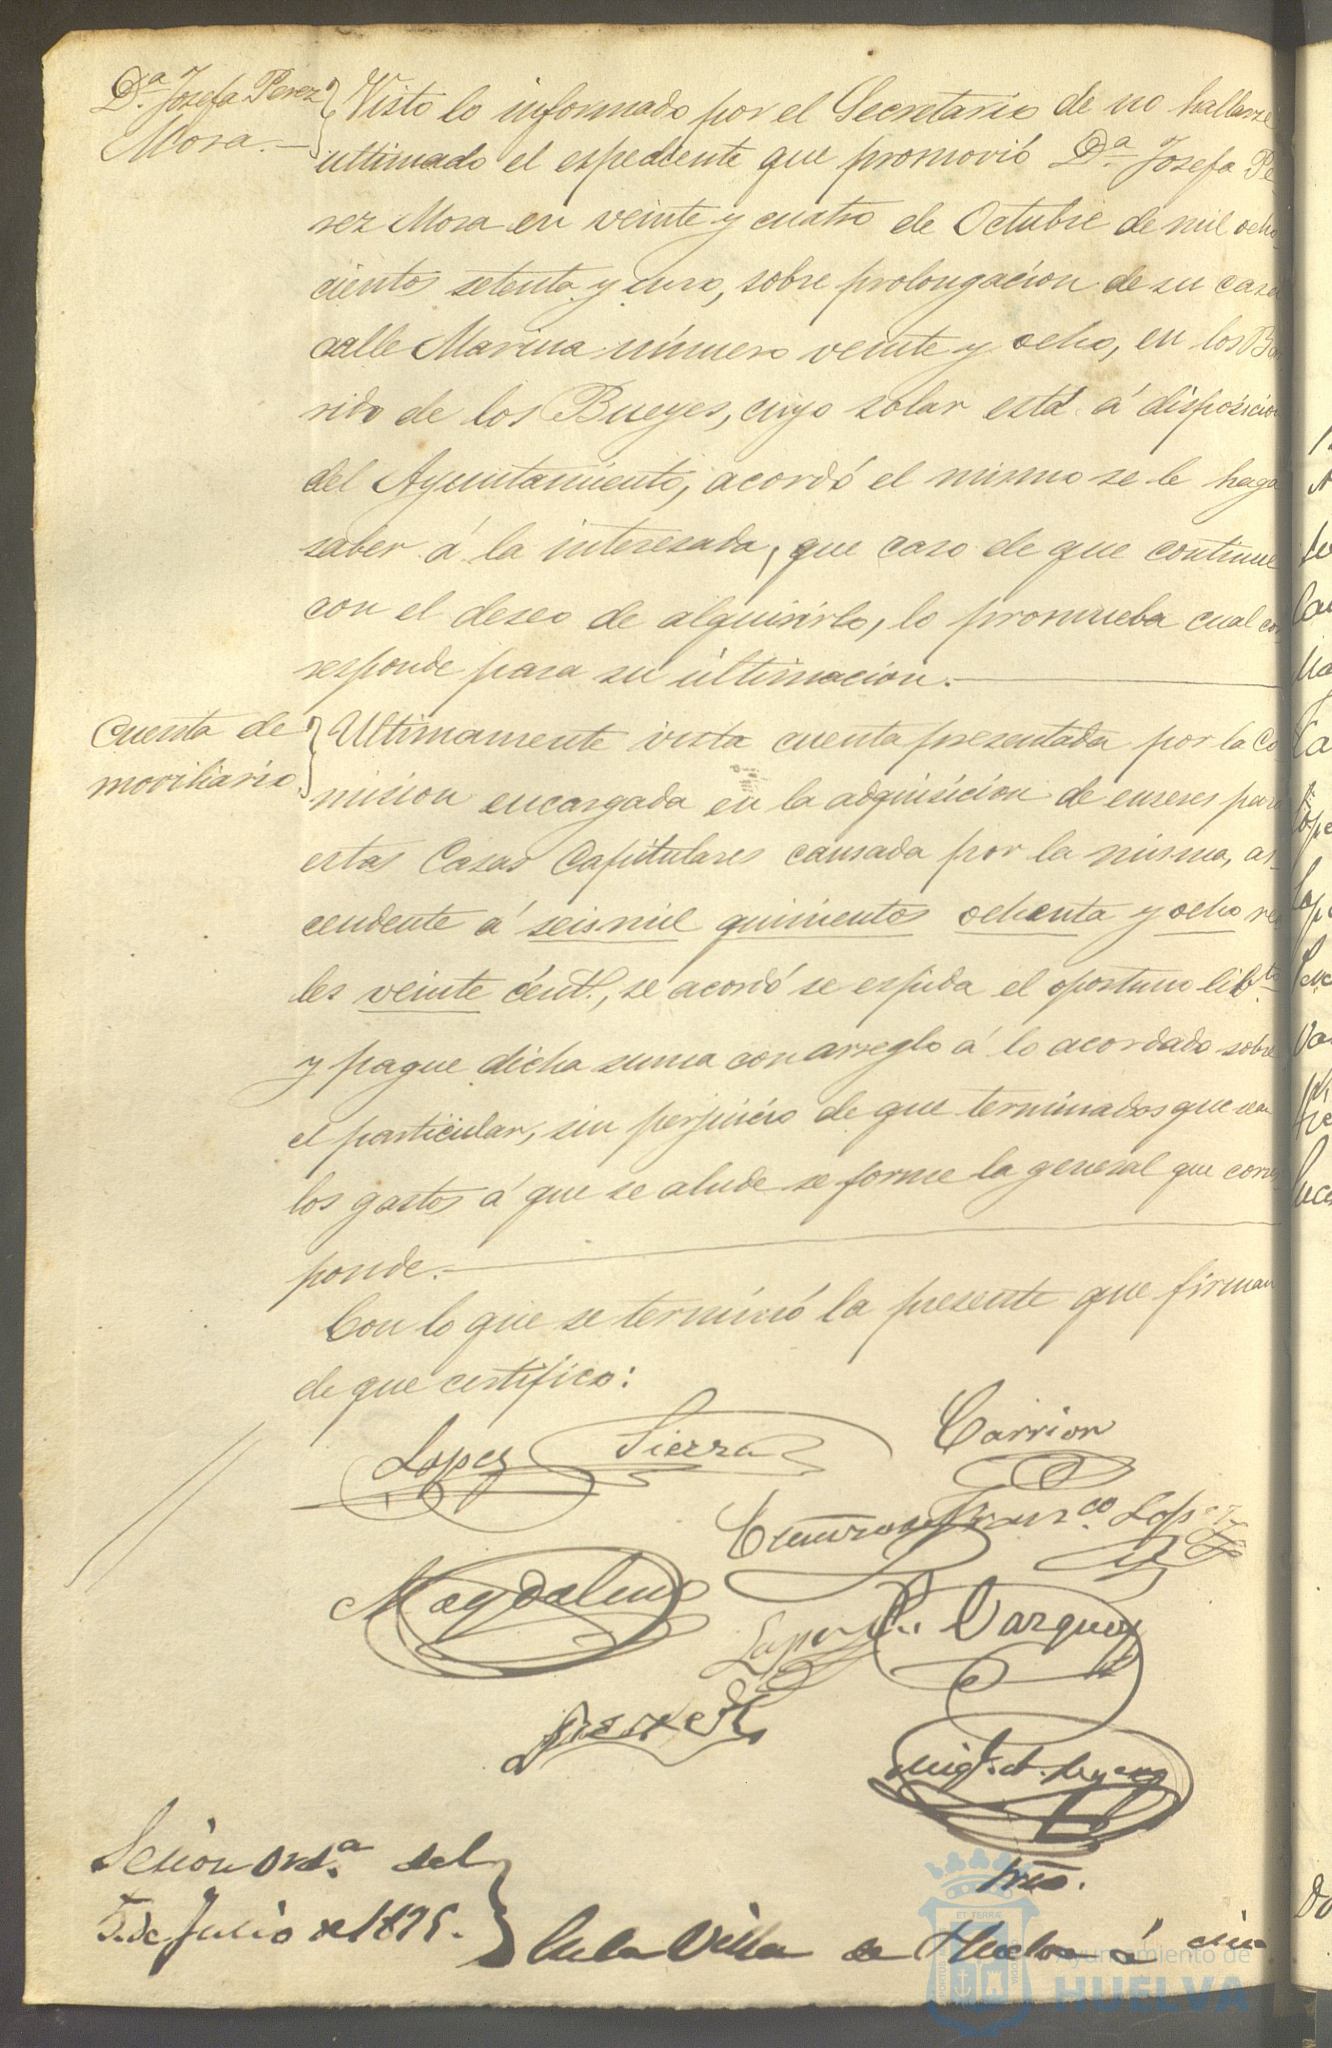 Dª. Josefa Perez
Mora.—
Visto lo informado por el Secretario de no hallarse
ultimado el espediente que promovió Dª. Josefa Pe
rez Mora en veinte y cuatro de Octubre de mil ocho
cientos setenta y uno, sobre prolongacion de su casa
calle Marina número veinte y ocho, en los
rido de los Bueyes, cuyo solar está á disposicion
del Ayuntamiento, acordó el mismo se le haga
saber á la interesada, que caso de que continue
con el deseo de alquirirlo, lo promueba cual cor
responde para su ultimacion.—
Cuenta de
moviliario.
Ultimamente vista cuenta presentada por la Co
mision encargada en la adquisicion de enseres para
estas Casas Capitulares causada por la misma, as-
cendente á seis mil quinientos ochenta y ocho rea
les veinte cént., se acordó se espida el oportuno lib.to
y pague dicha suma con arreglo á lo acordado sobre
el particular, sin perjuicio de que terminados que sean
los gastos á que se alude se forme la general que corres
ponde.—
Con lo que se terminó la presente que firman
de que certifico:
Lopez Sierra Carrion
Franco. Lopez
Magdaleno
Lopez P. Vazquez
Perez
Srio.
Sesion Ordª. del
5 de Julio de 1875.
En la Villa de Huelva á cin
Ayuntamiento de
HUELVA